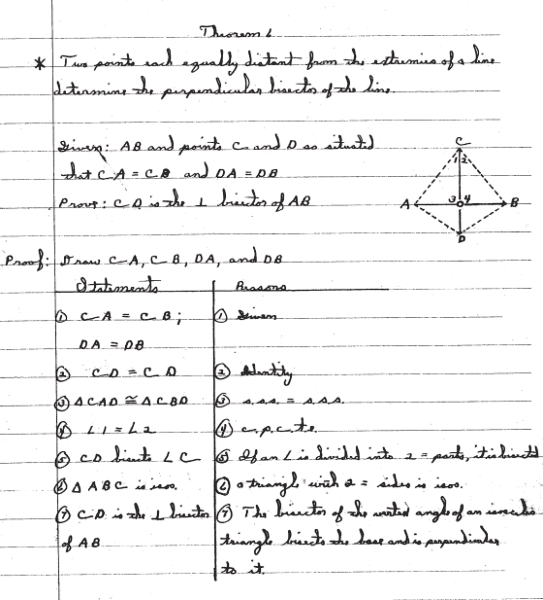 Theorem 6
* Two points each equally distant from the extremies of a line
determine the perpendicular bisector of the line.
Given: AB and points C and D so situated
that CA = CB and DA = DB
Prove: CD is the ⊥ bisector of AB
C
2
A
3
4
B
D
Proof: Draw CA, CB, DA, and DB
Statements
Reasons
① CA = CB;
① Given
DA = DB
② CD = CD
② Identity
③ △CAD ≅ △CBD
③ s.s.s. = s.s.s.
④ ∠1 = ∠2
④ c.p.c.t.e.
⑤ CD bisects ∠C
⑤ If an ∠ is divided into 2 = parts, it is bisected
⑥ △ABC is isos.
⑥ a triangle with 2 = sides is isos.
⑦ CD is the ⊥ bisector
⑦ The bisector of the vertex angle of an isosceles
of AB
triangle bisects the base and is perpendicular
to it.